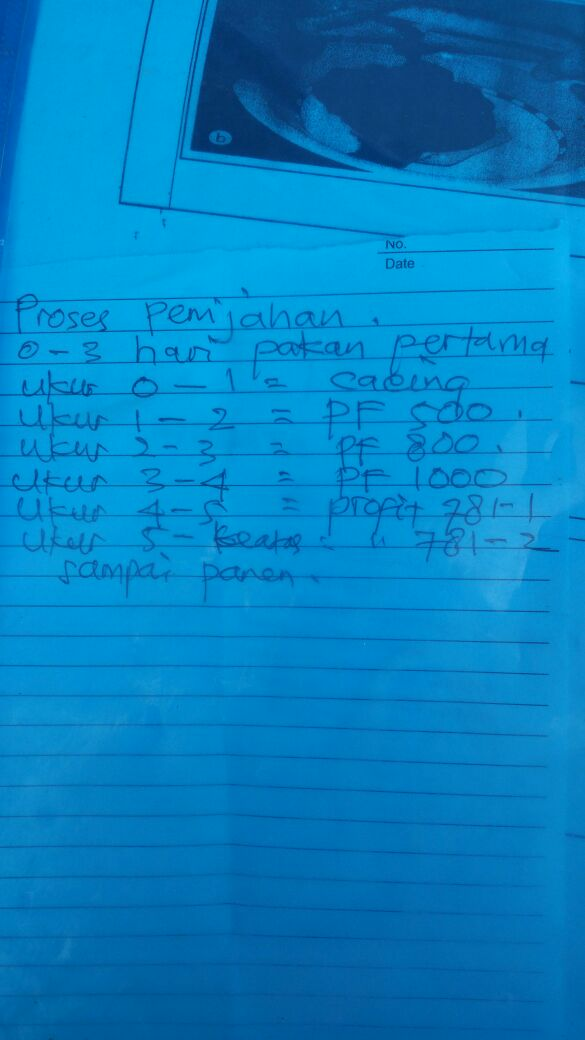 b
No.
Date
Proses pemijahan.
0-3 hari pakan pertama
Ukur 0 - 1 = cacing
Ukur 1 - 2 = PF 500.
Ukur 2 - 3 = PF 800.
Ukur 3 - 4 = PF 1000
Ukur 4 - 5 = profit 781-1
Ukur 5 - keatas = " 781-2
sampai panen.